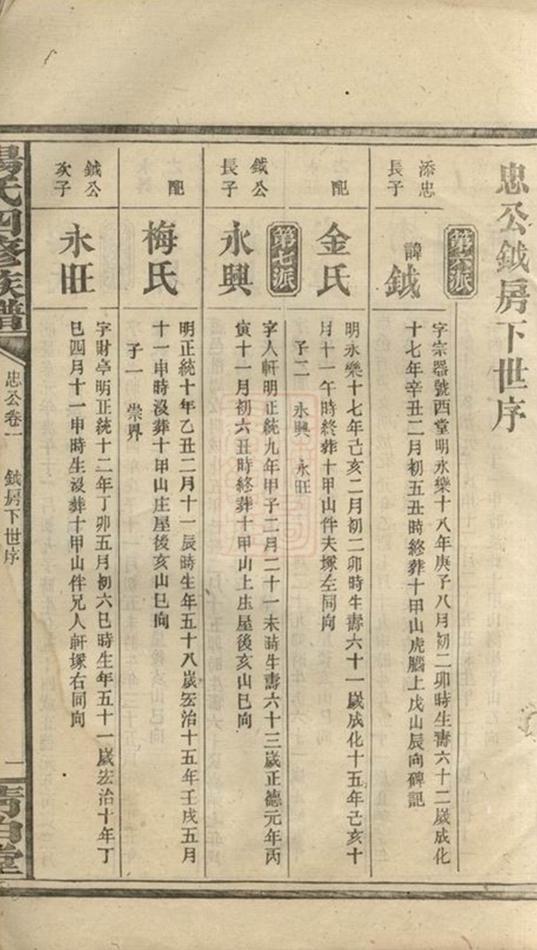 忠公鉞房下世序
第六派
添忠
長子
諱
鉞
字宗器號西堂明永樂十八年庚子八月初二卯時生壽六十二歲成化
十七年辛丑二月初五丑時終葬十甲山虎腦上戌山辰向碑記
配
金氏
明永樂十七年己亥二月初二卯時生壽六十一歲成化十五年己亥十
月十一午時終葬十甲山伴夫塚左同向
子二 永興 永旺
第七派
鉞公
長子
永興
字人軒明正統九年甲子二月二十一未時生壽六十三歲正德元年丙
寅十一月初六丑時終葬十甲山上庄屋後亥山巳向
配
梅氏
明正統十年乙丑二月十一辰時生年五十八歲宏治十五年壬戌五月
十一申時沒葬十甲山庄屋後亥山巳向
子一 崇界
鉞公
次子
永旺
字財亭明正統十二年丁卯五月初六巳時生年五十一歲宏治十年丁
巳四月十一申時生沒葬十甲山伴兄人軒塚右同向
楊氏四修族譜
忠公卷一
鉞房下世序
一
清白堂